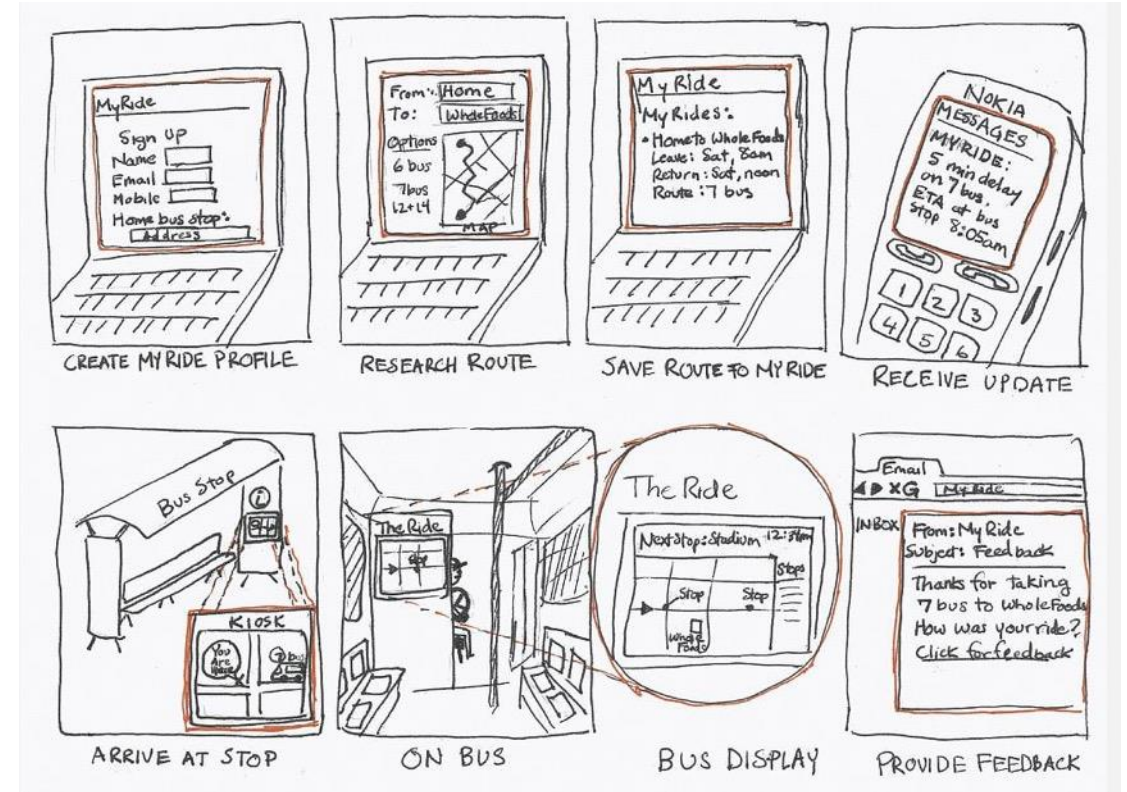 MyRide
Sign up
Name
Email
Mobile
Home bus stop:
Address
CREATE MYRIDE PROFILE
From: Home
To: Whole Foods
Options
6 bus
7 bus
12+14
MAP
RESEARCH ROUTE
My Ride
My Rides:
• Home to Whole Foods
Leave: Sat, 8am
Return: Sat, noon
Route: 7 bus
SAVE ROUTE TO MYRIDE
NOKIA
MESSAGES
MYRIDE:
5 min delay
on 7 bus.
ETA at bus
stop 8:05am
1 2 3
4 5 6
RECEIVE UPDATE
Bus Stop
i
KIOSK
You
Are
Here
7 bus
ARRIVE AT STOP
The Ride
Stop
ON BUS
The Ride
Next Stop: Stadium
Stops
Stop Stop
Whole
Foods
BUS DISPLAY
Email
XG My Ride
INBOX
From: My Ride
Subject: Feedback
Thanks for taking
7 bus to Whole Foods
How was your ride?
Click for feedback
PROVIDE FEEDBACK